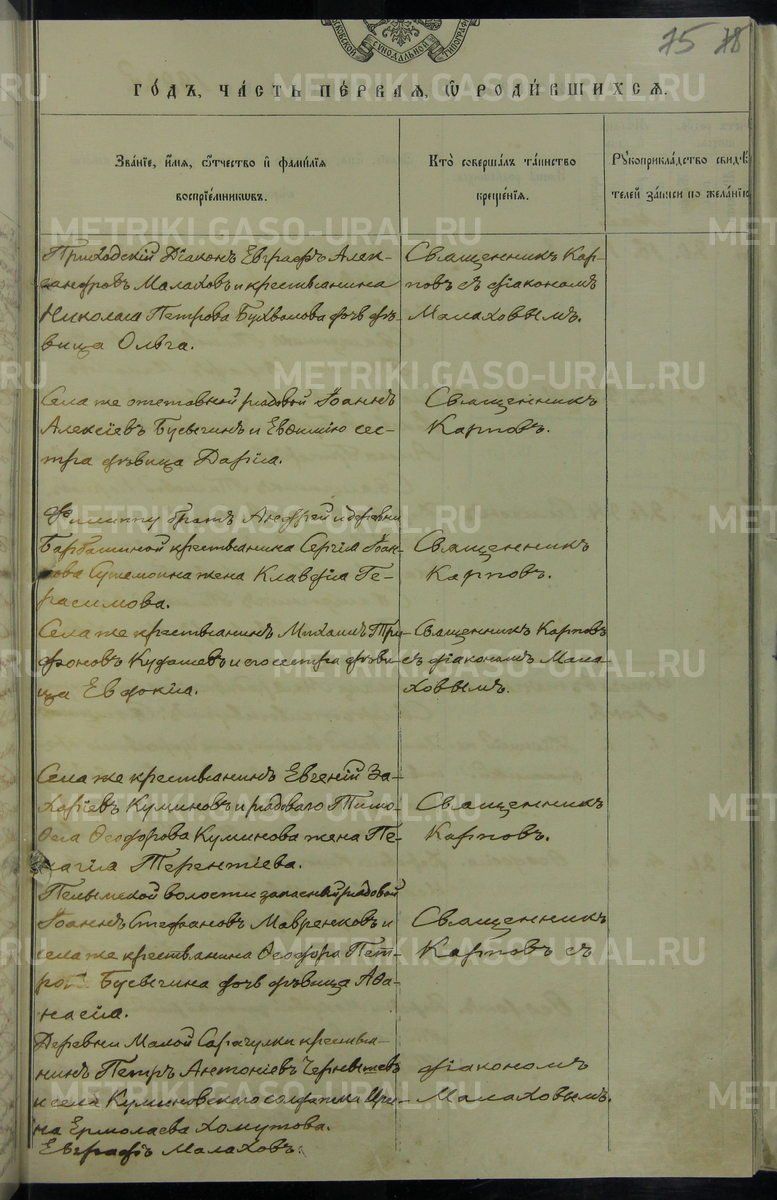 МОСКОВСКОЙ СУНОДАЛЬНОЙ ТИПОГРАФ
75 78
METRIKI.GASO-URAL.RU
ГО́ДЪ, ЧА́СТЬ ПЕ́РВАЯ, Ѡ РОДИ́ВШИХСЯ.
Зва́нїе, и́мя, ѻ́тчество и фами́лїя
воспрїе́мникѡвъ.
Кто̀ соверша́лъ та́инство
креще́нїя.
Рꙋкоприкла́дство свидѣ́
телей за́писи по жела́нїю
Приходскій Діаконъ Евграфъ Алек-
сандровъ Малаховъ и крестьянина
Николая Петрова Бухвалова дочь дѣ-
вица Ольга.
Священникъ Кар-
повъ съ діакономъ
Малаховымъ.
Села же отставной рядовой Іоаннъ
Алексіевъ Бусыгинъ и Евѳимію сес-
тра дѣвица Дарія.
Священникъ
Карповъ.
Филиппу братъ Андрей и деревни
Барбашиной крестьянина Сергія Іоан-
нова жена Клавдія Ге-
расимова.
Священникъ
Карповъ.
Села же крестьянинъ Михаилъ Три-
фоновъ Кудашевъ и его сестра дѣви-
ца Евдокія.
Священникъ Карповъ
съ діакономъ Мала-
ховымъ.
Села же крестьянинъ Евгеній За-
харіевъ Куминовъ и рядового Тимо-
ѳея Ѳеодорова Куминова жена Пе-
лагія Терентіева.
Священникъ
Карповъ.
Пелымской волости запасный рядовой
Іоаннъ Стефановъ Мавренковъ и
села же крестьянина Ѳеодора Пет-
рова Бусыгина дочь дѣвица Аѳа-
насія.
Священникъ
Карповъ съ
Деревни Малой крестья-
нинъ Петръ Антоніевъ Чернышевъ
и села Куминовскаго солдатка Ири-
на Ермолаева Хомутова.
діакономъ
Малаховымъ.
Евграфъ Малаховъ.